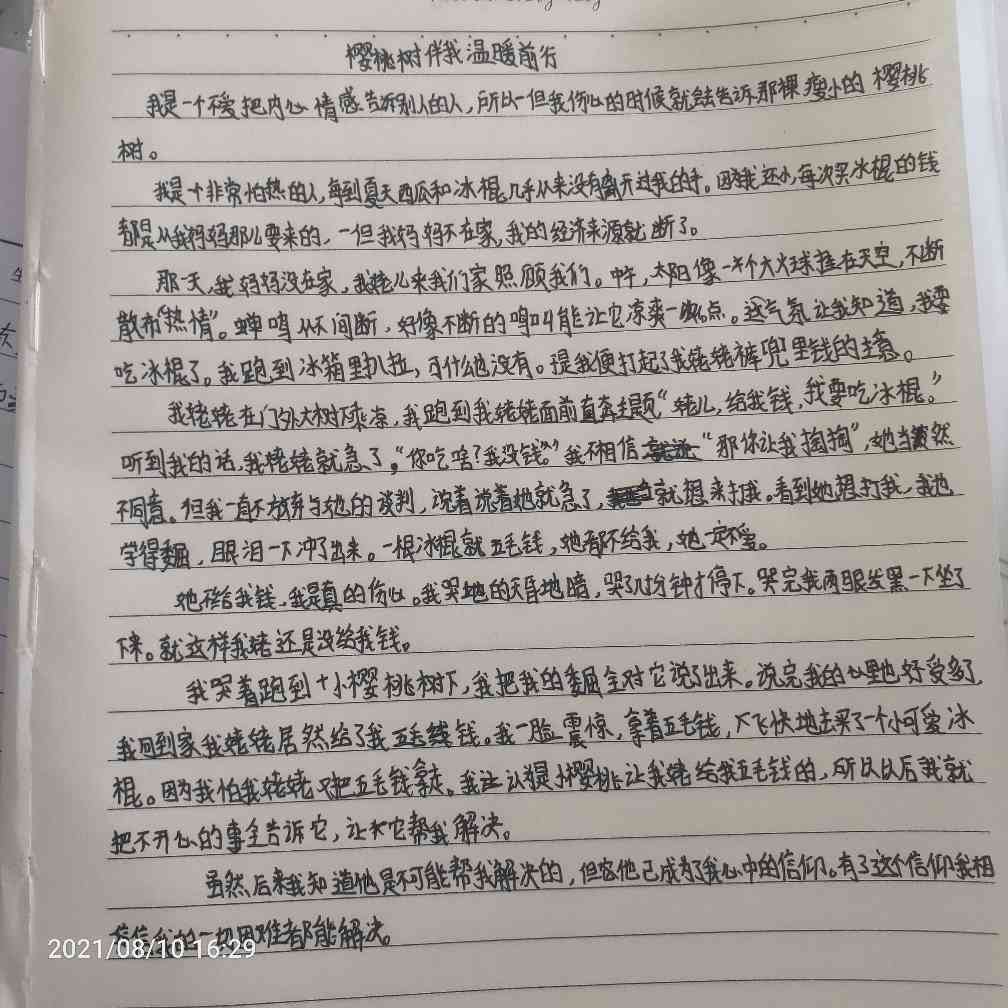 樱桃树伴我温暖前行
我是一个不爱把内心情感告诉别人的人，所以一但我伤心的时候就会去告诉那棵瘦小的樱桃
树。
我是个非常怕热的人，每到夏天西瓜和冰棍几乎从来没有离开过我的手。因为我还小，每次买冰棍的钱
都是从我妈妈那儿要来的，一但我妈妈不在家，我的经济来源就断了。
那一天，我妈妈没在家，我姥儿来我们家照顾我们。中午，太阳像一个大火球挂在天空，不断
散布“热情”。蝉鸣从不间断，好像不断的鸣叫能让它凉爽一点。这气氛让我知道，我要
吃冰棍了。我跑到冰箱里扒拉，可什么也没有。于是我便打起了我姥姥裤兜里钱的主意。
我姥姥在门外大树下乘凉，我跑到我姥姥面前直奔主题“姥儿，给我钱，我要吃冰棍。”
听到我的话，我姥姥就急了，“你吃啥？我没钱。”我不相信“那你让我掏掏”，她当然
不同意。但我一直不放弃与她的谈判，说着说着她就急了，就想来打我。看到她想打我，我也
觉得委屈，眼泪一下冲了出来。一根冰棍就五毛钱，她都不给我，她一定不爱。
她不给我钱，我是真的伤心。我哭地的天昏地暗，哭了几十分钟才停下。哭完我两眼发黑一下坐了
下来。就这样我姥还是没给我钱。
我哭着跑到小樱桃树下，我把我的委屈全对它说了出来。说完我的心里也好受多了，
我回到家我姥姥居然给了我五毛钱。我一脸震惊，拿着五毛钱，飞快地去买了一个小可爱冰
棍。因为我怕我姥姥又把五毛钱拿走。我认为是小樱桃让我姥给我五毛钱的，所以以后我就
把不开心的事全告诉它，让它帮我解决。
虽然后来我知道他是不可能帮我解决的，但它他已成为了我心中的信仰。有了这个信仰我相
信我的一切困难都能解决。
2021/08/10 16:29